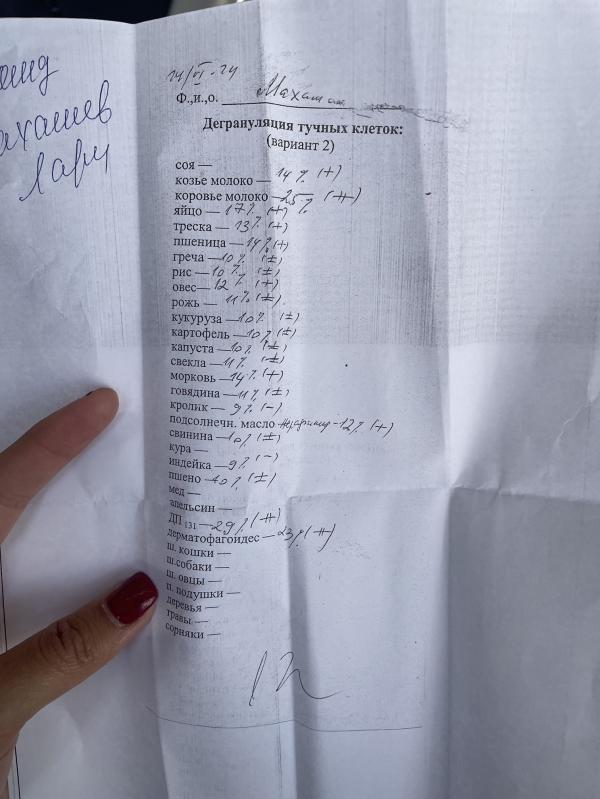 14/VI-24
Ф.,и.,о.
Дегрануляция тучных клеток:
(вариант 2)
соя —
козье молоко — 14% (+)
коровье молоко — 25% (++)
яйцо — 17% (+)
треска — 13% (+)
пшеница — 14% (+)
греча — 10% (±)
рис — 10% (±)
овес — 12% (+)
рожь — 11% (±)
кукуруза — 10% (±)
картофель — 10% (±)
капуста — 10% (±)
свекла — 11% (±)
морковь — 14% (+)
говядина — 11% (±)
кролик — 9% (-)
подсолнечн. масло — 12% (+)
свинина — 10% (±)
кура —
индейка — 9% (-)
пшено — 10% (±)
мед —
апельсин —
ДП 131 — 29% (++)
дерматофагоидес — 23% (++)
ш. кошки —
ш.собаки —
ш. овцы —
п. подушки —
деревья —
травы —
сорняки —